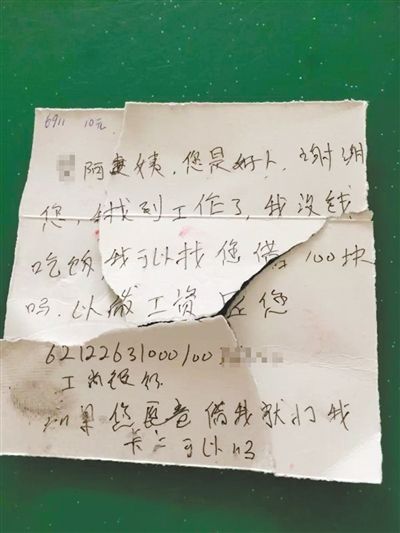 6911 10元
阿姨,您是好人,谢谢
您,我找到工作了,我没钱
吃饭我可以找您借100块
吗.以工资您
62122631000100
工
如果您愿意借我就打我
卡上可以吗